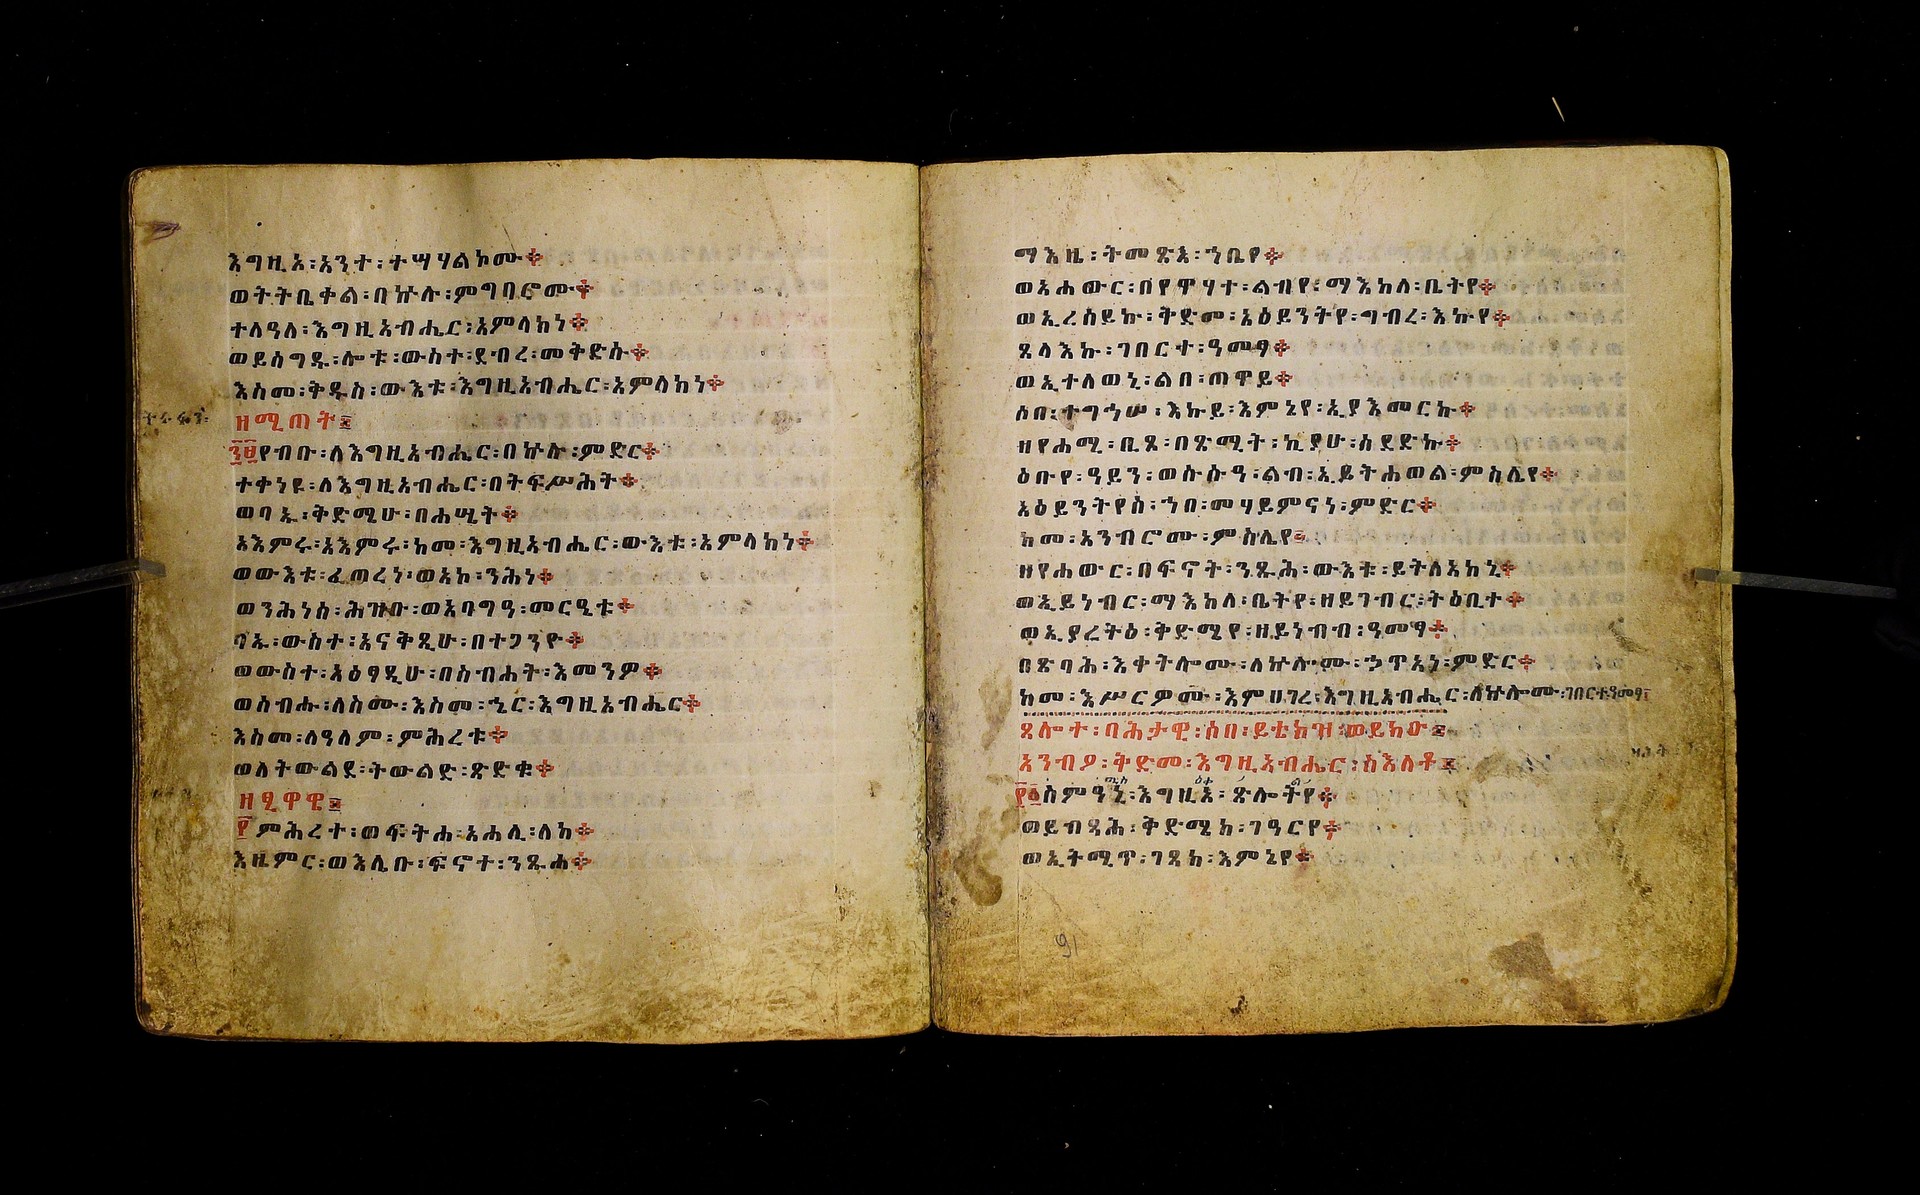 እግዚኦ፡አንተ፡ተሣሃልኮሙ፨
ወትትቤቀል፡በኵሉ፡ምግባሮሙ፨
ተለዓለ፡እግዚአብሔር፡አምላከነ፨
ወይሰግዱ፡ሎቱ፡ውስተ፡ደብረ፡መቅድሱ፨
እስመ፡ቅዱስ፡ውእቱ፡እግዚአብሔር፡አምላከነ፨
ዘሚጠት፤
፺፱የብቡ፡ለእግዚአብሔር፡በኵሉ፡ምድር፨
ተቀነዩ፡ለእግዚአብሔር፡በትፍሥሕት፨
ወባኡ፡ቅድሜሁ፡በሐሤት፨
አእምሩ፡አእምሩ፡ከመ፡እግዚአብሔር፡ውእቱ፡አምላከነ፨
ወውእቱ፡ፈጠረነ፡ወአኮ፡ንሕነ፨
ወንሕነሰ፡ሕዝቡ፡ወአባግዓ፡መርዔቱ፨
ባኡ፡ውስተ፡አናቅጺሁ፡በተጋንዮ፨
ወውስተ፡አዕፃዲሁ፡በስብሐት፡እመንዎ፨
ወሰብሑ፡ለስሙ፡እስመ፡ኄር፡እግዚአብሔር፨
እስመ፡ለዓለም፡ምሕረቱ፨
ወለትውልደ፡ትውልድ፡ጽድቁ፨
ዘፂዋዊ፤
፻ምሕረተ፡ወፍትሐ፡አሐሊ፡ለከ፨
እዜምር፡ወእሌቡ፡ፍኖተ፡ንጹሐ፨
ማእዜ፡ትመጽእ፡ኀቤየ፨
ወአሐውር፡በየዋሃተ፡ልብየ፡ማእከለ፡ቤትየ፨
ወኢረሰይኩ፡ቅድመ፡አዕይንትየ፡ግብረ፡እኩየ፨
ጸላእኩ፡ገበርተ፡ዓመፃ፨
ወኢተለወኒ፡ልበ፡ጠዋይ፨
ሰበ፡ተግኅሠ፡እኩይ፡እምኔየ፡ኢያእመርኩ፨
ዘየሐሚ፡ቢጾ፡በጽሚት፡ኪያሁ፡ሰደድኩ፨
ዕቡየ፡ዓይን፡ወስሱዓ፡ልብ፡ኢይትሐወል፡ምስሌየ፨
አዕይንትየሰ፡ኀበ፡መሃይምናነ፡ምድር፨
ከመ፡አንብሮሙ፡ምስሌየ፨
ዘየሐውር፡በፍኖት፡ንጹሕ፡ውእቱ፡ይትለአከኒ፨
ወኢይነብር፡ማእከለ፡ቤትየ፡ዘይገብር፡ትዕቢተ፨
ወኢያረትዕ፡ቅድሜየ፡ዘይነብብ፡ዓመፃ፨
በጽባሕ፡እቀትሎሙ፡ለኵሎሙ፡ኃጥአነ፡ምድር፨
ከመ፡እሥርዎሙ፡እምሀገረ፡እግዚአብሔር፡ለኵሎሙ፡ገበርተዓመፃ፨
ጸሎተ፡በሕታዊ፡ሰበ፡ይቴክዝ፡ወይክዑ፤
አንብዖ፡ቅድመ፡እግዚአብሔር፡ስእለቶ፤
፻፩ስምዓኒ፡እግዚኦ፡ጽሎትየ፨
ወይብጻሕ፡ቅድሜከ፡ገዓርየ፨
ወኢትሚጥ፡ገጸከ፡እምኔየ፨